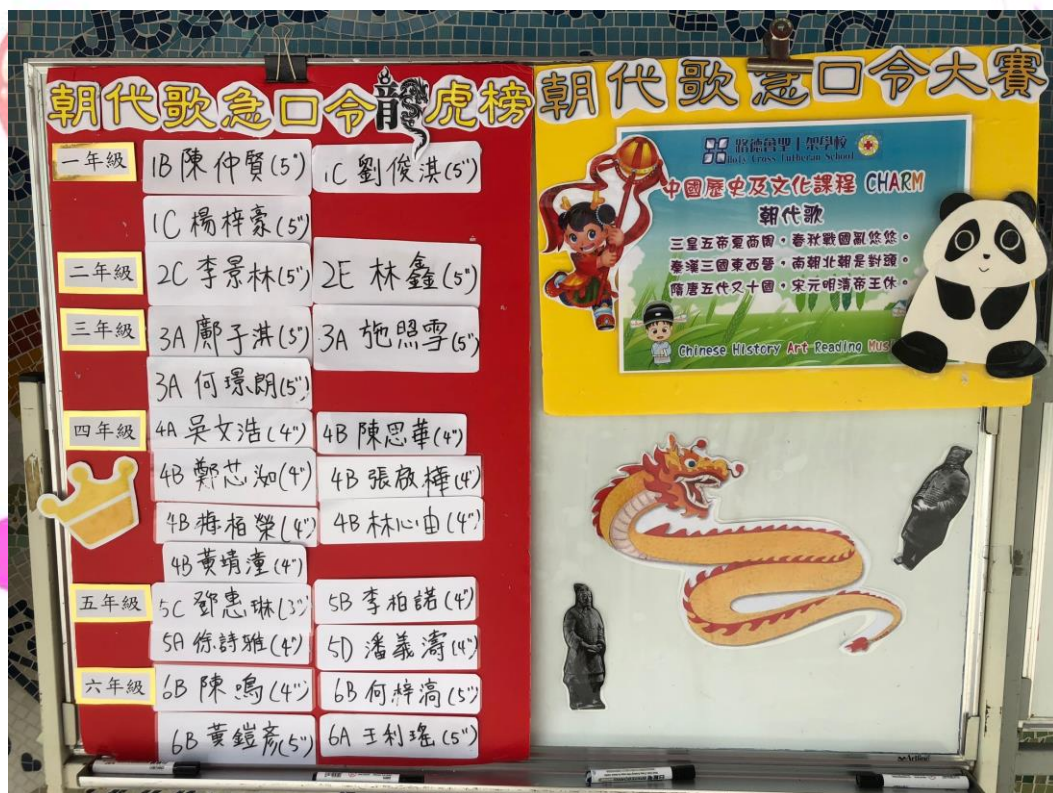 朝代歌急口令龍虎榜
一年級 1B 陳仲賢(5") 1C 劉俊淇(5")
1C 楊梓豪(5")
二年級 2C 李景林(5") 2E 林鑫(5")
三年級 3A 鄺子淇(5") 3A 施照雪(5")
3A 何璟朗(5")
四年級 4A 吳文浩(4") 4B 陳思華(4")
4B 鄭芯洳(4") 4B 張啟樺(4")
4B 梅栢榮(4") 4B 林心由(4")
4B 黃靖潼(4")
五年級 5C 鄧惠琳(3") 5B 李柏諾(4")
5A 徐詩雅(4") 5D 潘義濤(4")
六年級 6B 陳鳴(4") 6B 何梓滈(5")
6B 黃鎧彥(5") 6A 王利瑤(5")
朝代歌急口令大賽
路德會聖十架學校
Holy Cross Lutheran School
中國歷史及文化課程 CHARM
朝代歌
三皇五帝夏商周，春秋戰國亂悠悠。
秦漢三國東西晉，南朝北朝是對頭。
隋唐五代又十國，宋元明清帝王休。
Chinese History Art Reading Mus